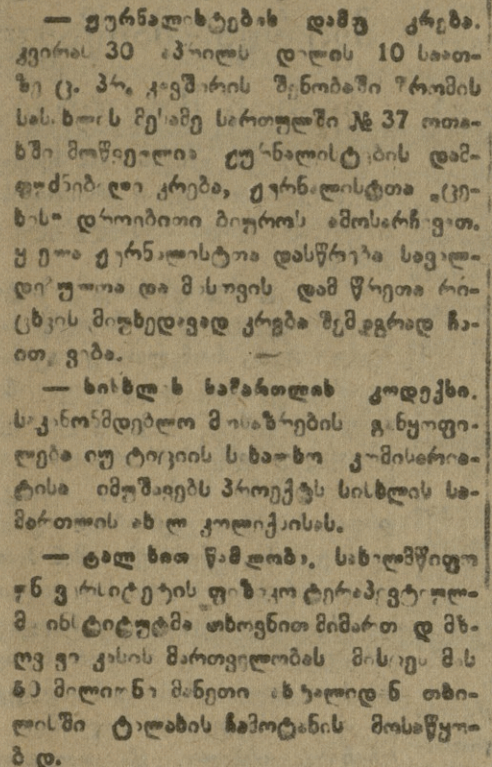 — ჟურნალისტების დამფ კრება.
კვირას 30 აპრილს დილის 10 საათ-
ზე ც. პრ. კავშირის შენობაში შრომის
სასახლის მესამე სართულში № 37 ოთა-
ხში მოწვეულია ჟურნალისტების დამ-
ფუძნებელი კრება, ჟურნალისტთა
დროებითი ბიუროს ამოსარჩევათ.
ყველა ჟურნალისტთა დასწრება სავალ-
დებულოა და მისთვის დამსწრეთა რი-
ცხვის მიუხედავად კრება შემდგრად ჩა-
ითვლება.
— სისხლის სამართლის კოდექსი.
საკანონმდებლო მოსაზრების განყოფი-
ლება იუსტიციის სახალხო კომისარია-
ტისა იმუშავებს პროექტს სისხლის სა-
მართლის ახალ კოდექსისას.
— ტალახით წამლობა. სახელმწიფო
უნივერსიტეტის ფიზიკოტერაპევტიულ-
მა ინსტიტუტმა თხოვნით მიმართა
მართველობას მისცეს მას
50 მილიონი მანეთი თბი-
ლისში ტალახის ჩამოტანის მოსაწყო-
ბად.